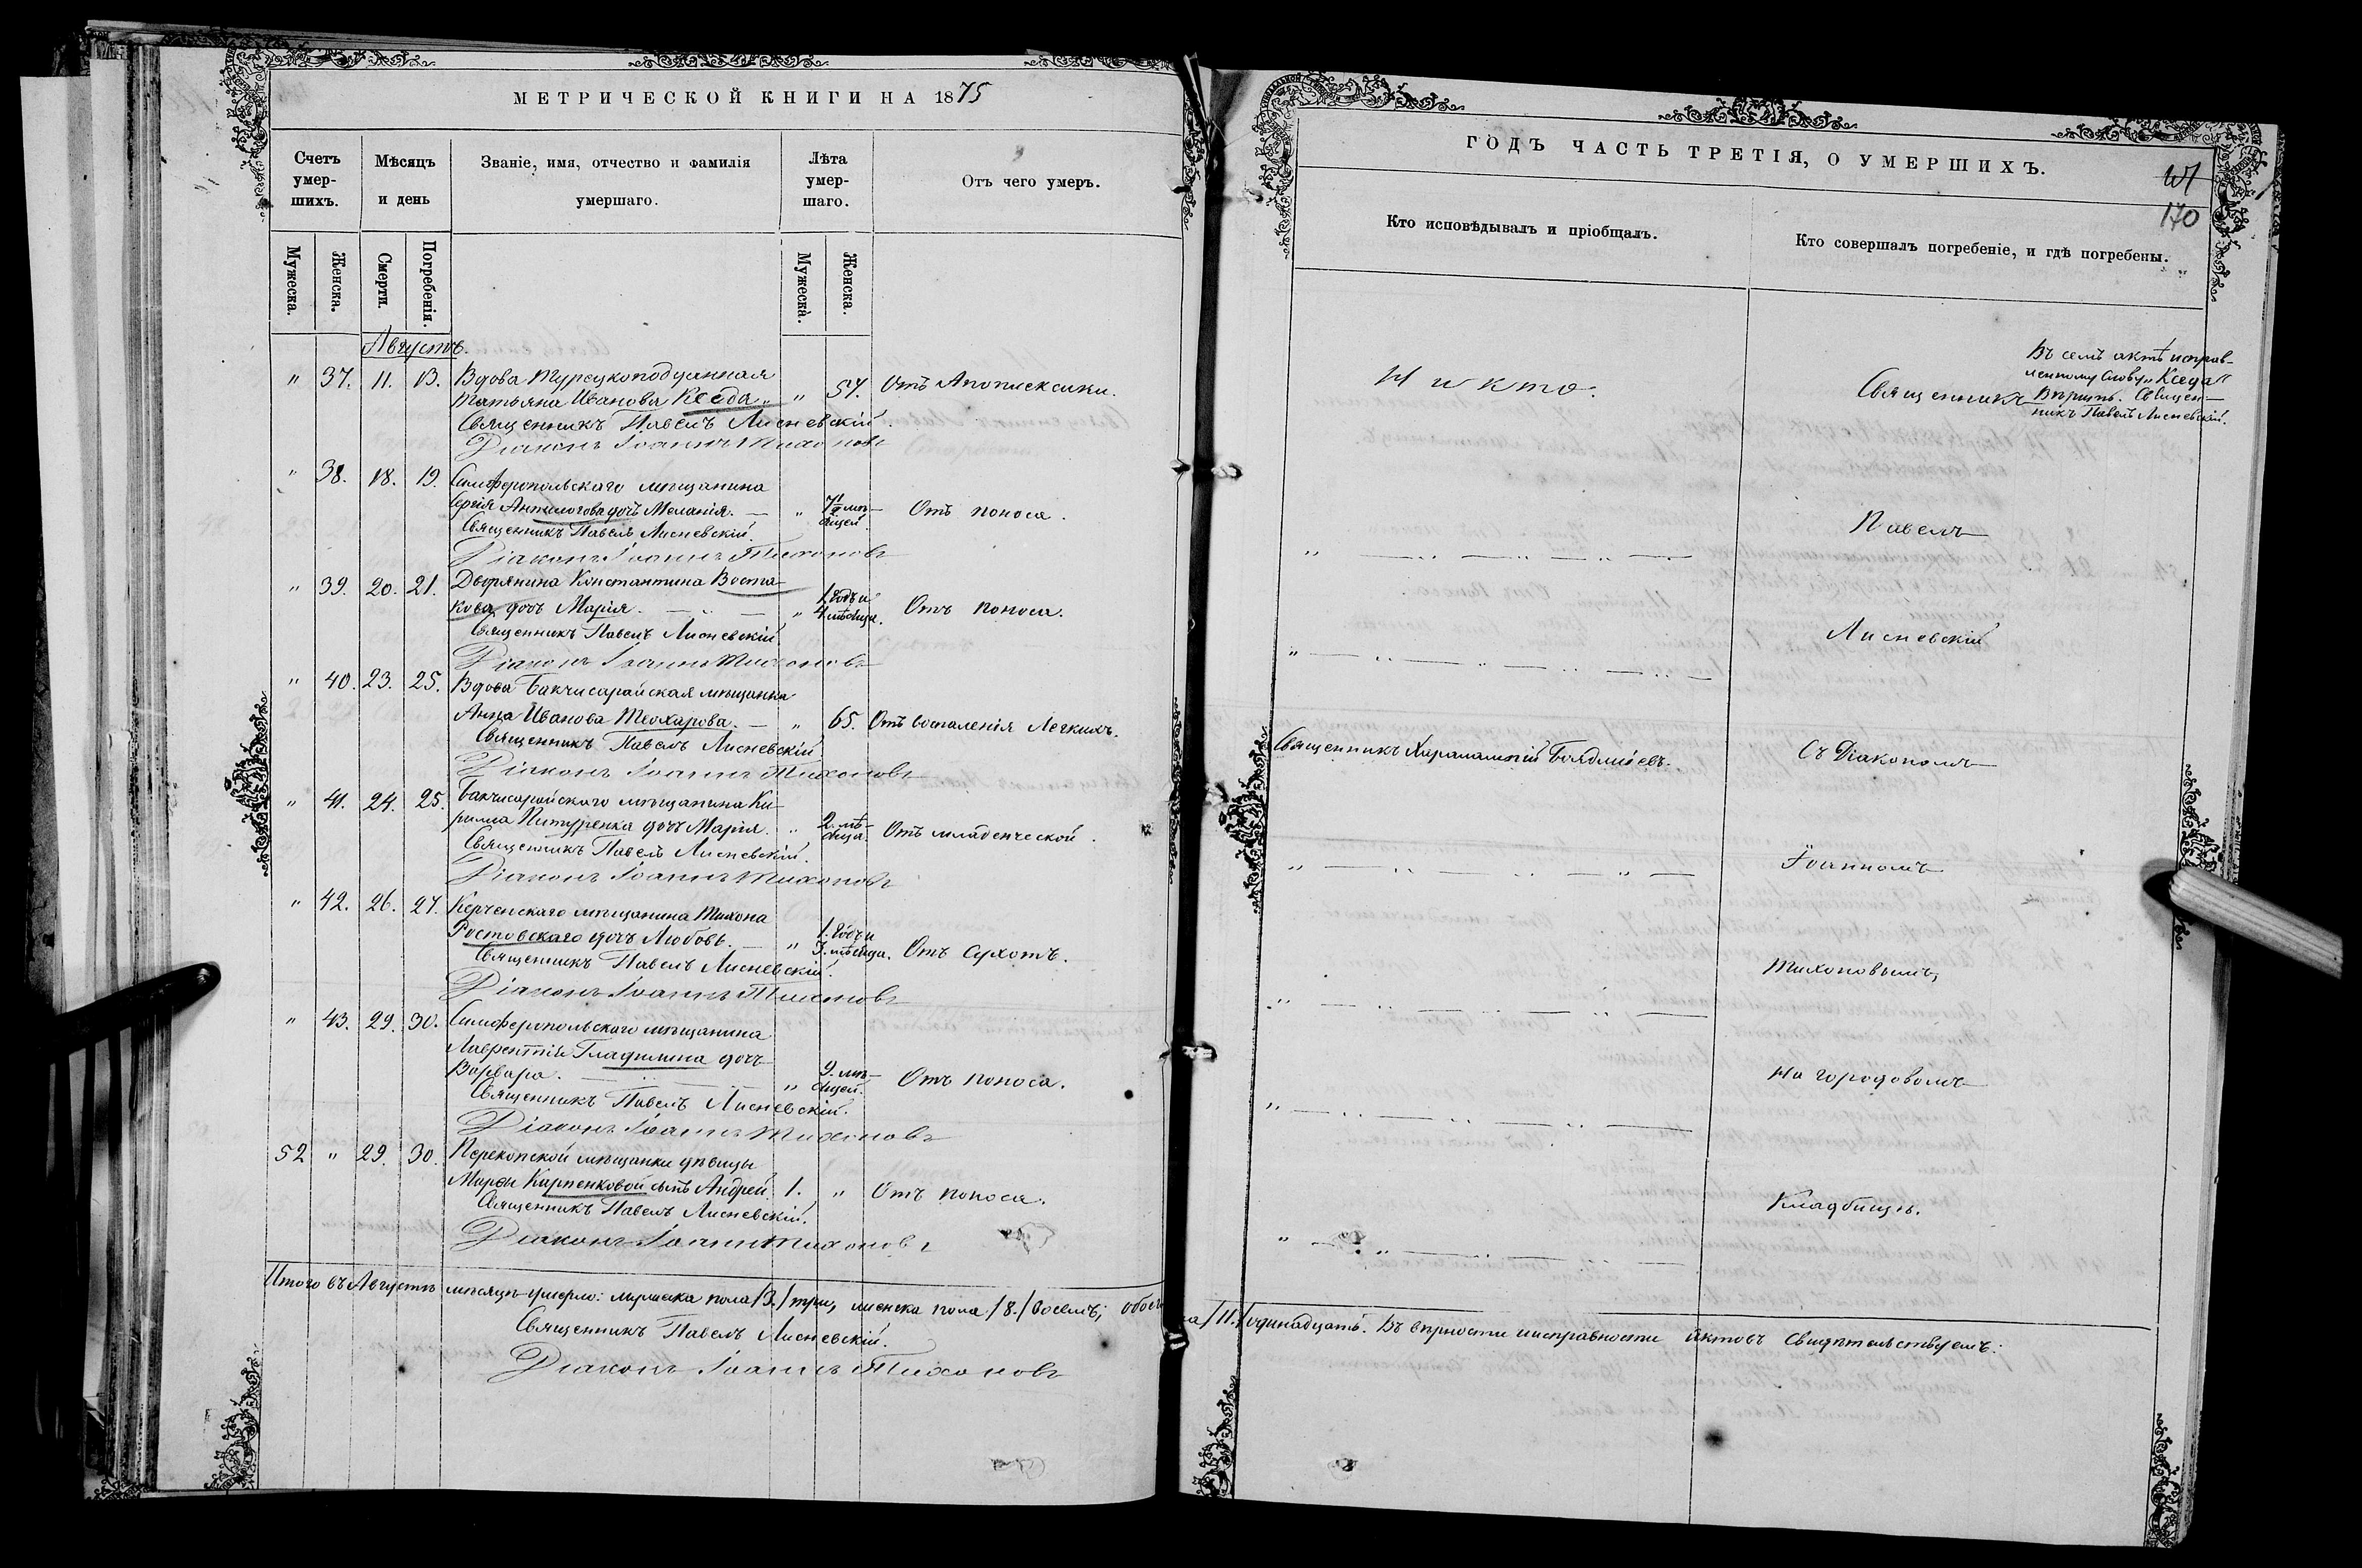 МЕТРИЧЕСКОЙ КНИГИ НА 1875
Счетъ умер-шихъ.
Мѣсяцъ и день
Званіе, имя, отчество и фамилія умершаго.
Лѣта умер-шаго.
Отъ чего умеръ.
Мужеска.
Женска.
Смерти.
Погребенія.
Мужеска.
Женска.
Августъ.
" 37. 11. 13. Вдова Турецкоподданная
Татьяна Иванова Кседа. " 57. Отъ Апоплексіи.
Священникъ Павелъ Лисневскій.
Діаконъ Іоаннъ Тихоновъ
" 38. 18. 19. Симферопольскаго мѣщанина
Сергія Антилогова дочь Меланія. — " мѣ-сяцей. Отъ поноса.
Священникъ Павелъ Лисневскій.
Діаконъ Іоаннъ Тихоновъ
" 39. 20. 21. Дворянина Константина Воста-
кова дочь Марія. — " — " 1. годъ и 4 мѣсяца. Отъ поноса.
Священникъ Павелъ Лисневскій.
Діаконъ Іоаннъ Тихоновъ
" 40. 23. 25. Вдова Бакчисарайская мѣщанка
Анна Иванова Теохарова. — " 65. Отъ воспаленія Легкихъ.
Священникъ Павелъ Лисневскій
Діаконъ Іоаннъ Тихоновъ
" 41. 24. 25. Бакчисарайскаго мѣщанина Ки-
рилла Питуренка дочь Марія. " 2. мѣ-сяца. Отъ младенческой.
Священникъ Павелъ Лисневскій.
Діаконъ Іоаннъ Тихоновъ
" 42. 26. 27. Керченскаго мѣщанина Тихона
Ростовскаго дочь Любовь. — " 1. годъ и 3. мѣсяца. Отъ Сухотъ.
Священникъ Павелъ Лисневскій.
Діаконъ Іоаннъ Тихоновъ
" 43. 29. 30. Симферопольскаго мѣщанина
Лаврентія Гладилина дочь
Варвара. — " — " 9. мѣ-сяцей. Отъ поноса.
Священникъ Павелъ Лисневскій.
Діаконъ Іоаннъ Тихоновъ
52 " 29. 30. Перекопской мѣщанки дѣвицы
Марфы Карпенковой сынъ Андрей 1. " Отъ поноса.
Священникъ Павелъ Лисневскій.
Діаконъ Іоаннъ Тихоновъ
Итого въ Августѣ мѣсяцѣ умерло: мужеска пола /3./ три, женска пола /8./ восемь; обоего
Священникъ Павелъ Лисневскій.
Діаконъ Іоаннъ Тихоновъ
ГОДЪ ЧАСТЬ ТРЕТІЯ, О УМЕРШИХЪ.
170
Кто исповѣдывалъ и пріобщалъ.
Кто совершалъ погребеніе, и гдѣ погребены.
Никто.
Священникъ
Въ семъ актѣ исправ-
ленному слову „Кседа"
Вѣрить. Священ-
никъ Павелъ Лисневскій.
Павелъ
Лисневскій
Священникъ Харалампій
Съ Діакономъ
Іоанномъ
Тихоновымъ,
На городовомъ
Кладбищѣ.
/11./ одинадцать. Въ вѣрности и исправности актовъ свидѣтельствуемъ: